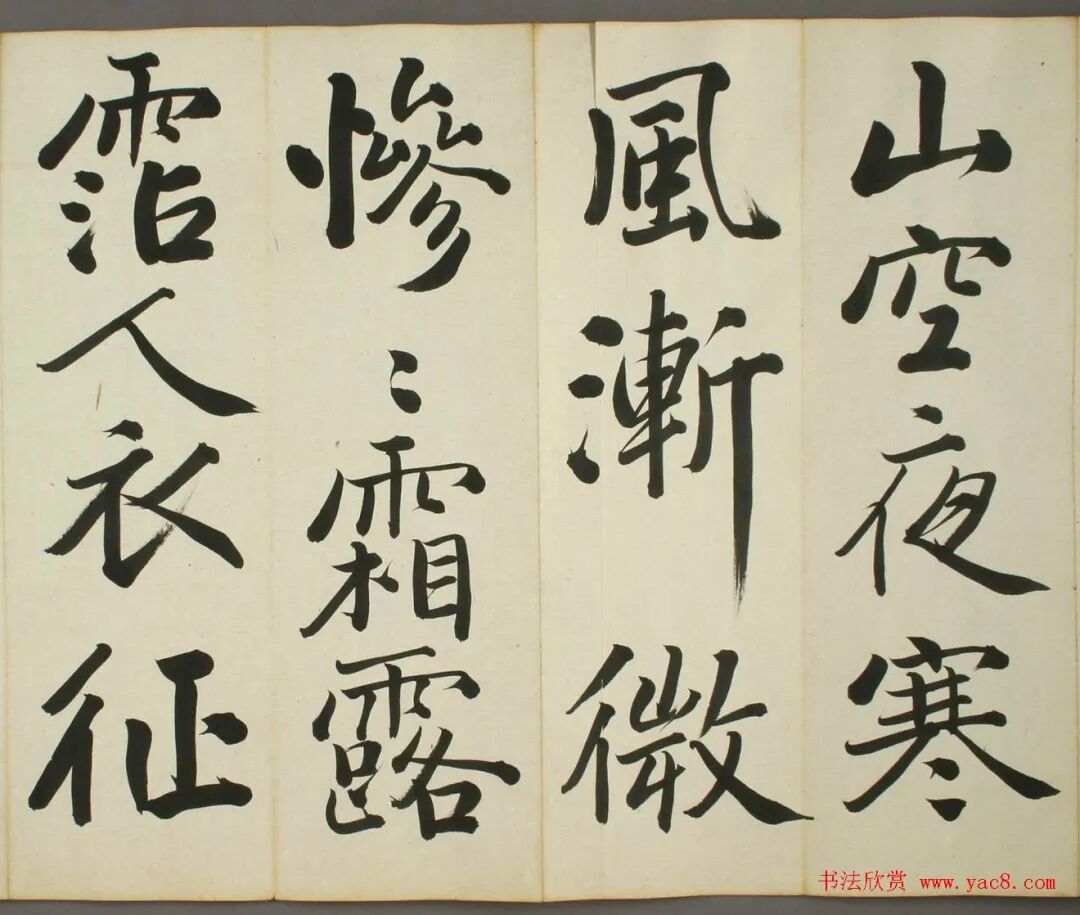 山空夜寒
風漸微
慘〻霜露
霑人衣征
书法欣赏 www.yac8.com